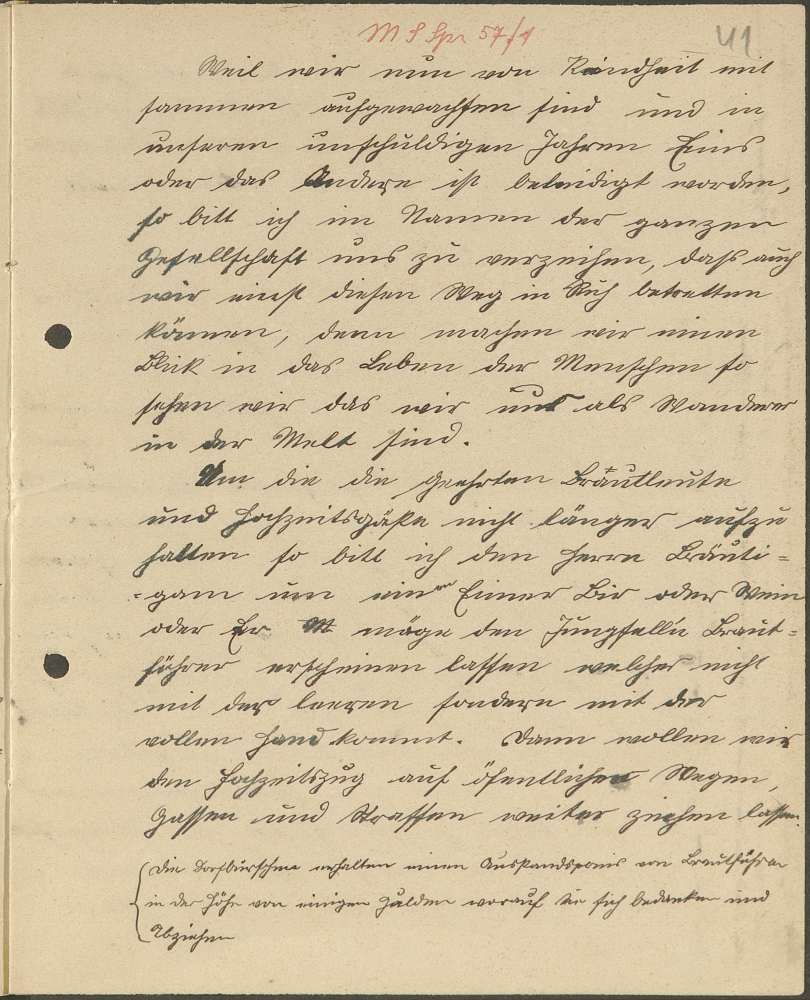 M S Spr 57/1
41
Weil wir nun von Kindheit mit
sammen aufgewachsen sind und in
unseren unschuldigen Jahren Eins
oder das Andere ist beleidigt worden,
so bitt ich im Namen der ganzen
Gesellschaft uns zu verzeihen, dass auch
wir einst diesen Weg in Ruh betretten
können, denn machen wir einen
Blick in das Leben der Menschen so
sehen wir das wir uns als Wanderer
in der Welt sind.
Um die die geehrten Bräutleute
und Hochzeitsgäste nicht länger aufzu
halten so bitt ich den Herrn Bräuti=
=gam um einen Eimer Bir oder Wein
oder Er möge den Jungsell'n Braut=
führer erscheinen lassen welcher nicht
mit der leeren sondern mit der
vollen Hand kommt. Dann wollen wir
den Hochzeitszug auf öfentlichen Wegen,
Gassen und Strassen weiter ziehen lassen.
die Dorfburschen erhalten einen von Brautführer
in der Höhe von einigen Gulden worauf sie sich bedanken und
Abziehen